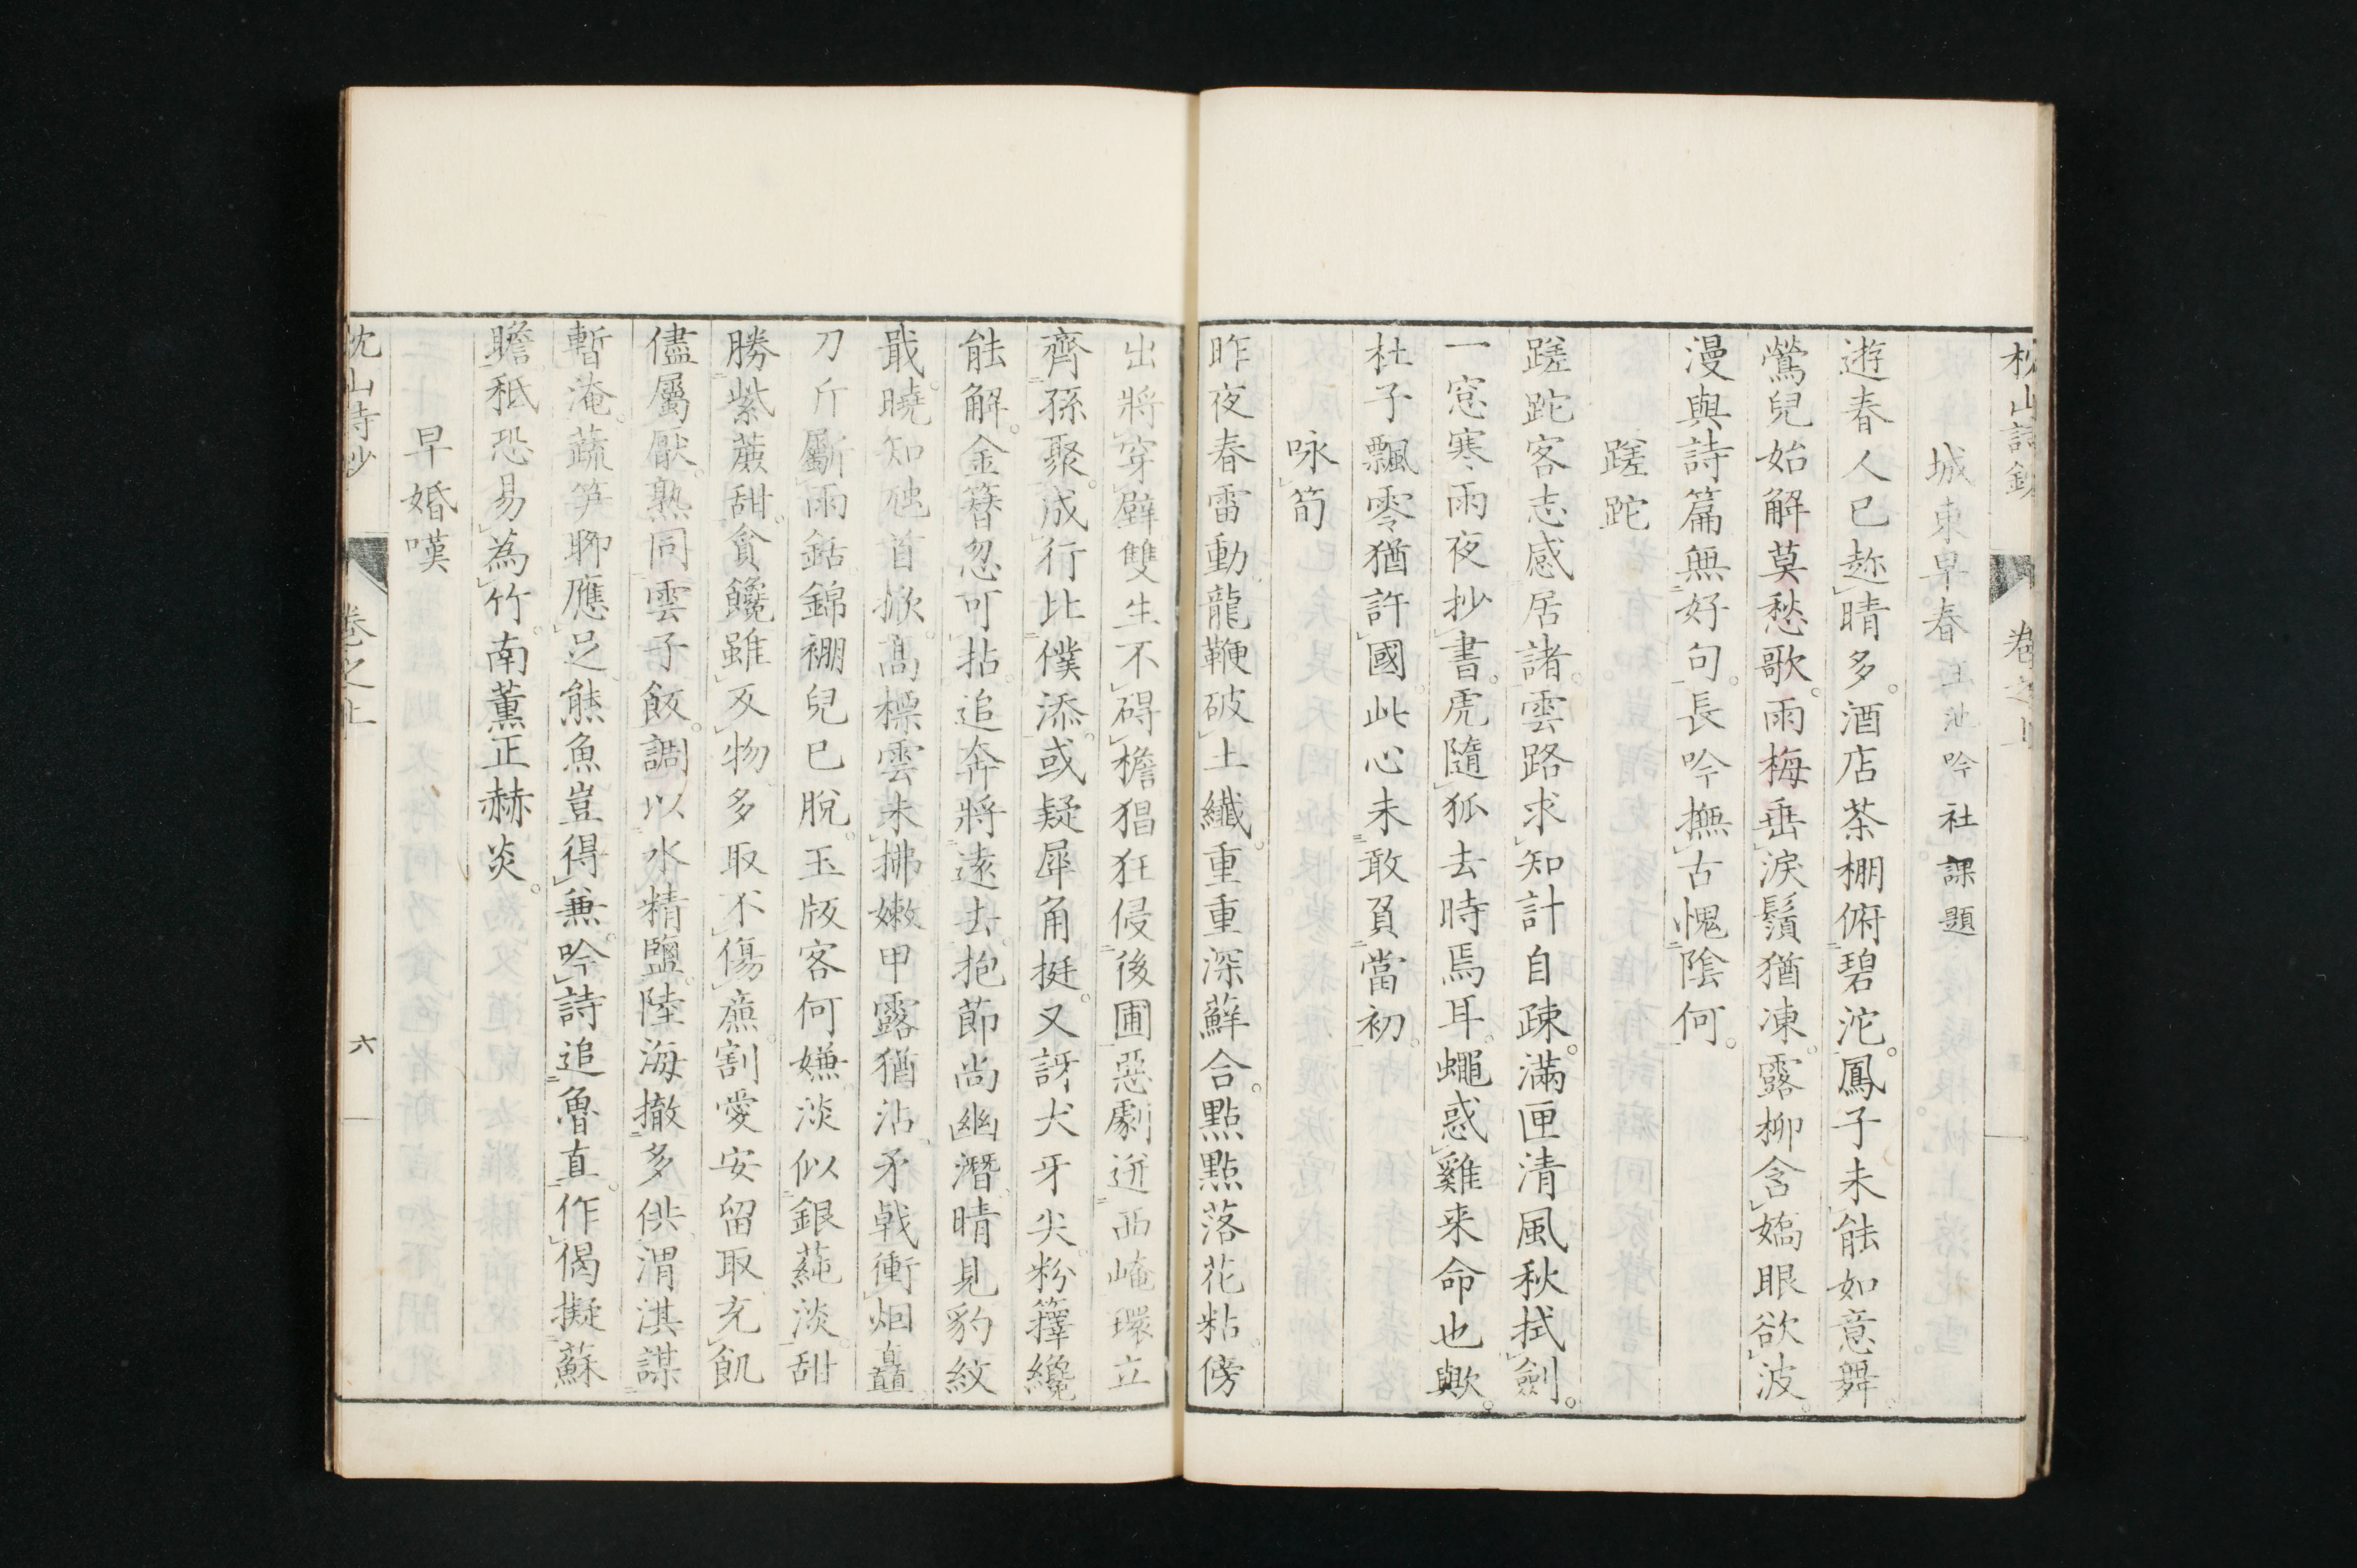 枕山詩鈔 卷之上
城東早春 玉池吟社課題
遊春人已趂晴多。酒店茶棚俯碧沱。鳳子未能如意舞。
鶯兒始解莫愁歌。雨梅垂淚鬚猶凍。露柳含嬌眼欲波。
漫與詩篇無好句。長吟撫古愧陰何。
蹉跎
蹉跎客志感居諸。雲路求知計自疎。滿匣清風秋拭劍。
一窓寒雨夜抄書。虎隨狐去時焉耳。蠅惑雞来命也歟。
杜子飄零猶許國。此心未敢負當初。
咏筍
昨夜春雷動。龍鞭破土纖。重重深蘚合。點點落花粘。傍
出將穿壁。雙生不碍檐。猖狂侵後圃。惡劇迸西崦。環立
齊孫聚。成行比僕添。或疑犀角挺。又訝犬牙尖。粉籜纔
能解。金簪忽可拈。追奔將遠去。抱節尚幽潛。晴見豹紋
戢。曉知虺首掀。高標雲未拂。嫩甲露猶沾。矛戟衝烟矗。
刀斤斸雨銛。錦棚兒已脫。玉版客何嫌。淡似銀蒓淡。甜
勝紫蕨甜。貪饞雖夭物。多取不傷廉。割愛安留取。充飢
儘屬厭。熟同雲子飯。調以水精鹽。陸海撤多供。渭淇謀
暫淹。蔬笋聊應足。熊魚豈得兼。吟詩追魯直。作偈擬蘇
瞻。秪恐易為竹。南薰正赫炎。
早婚嘆
枕山詩鈔 卷之上 六